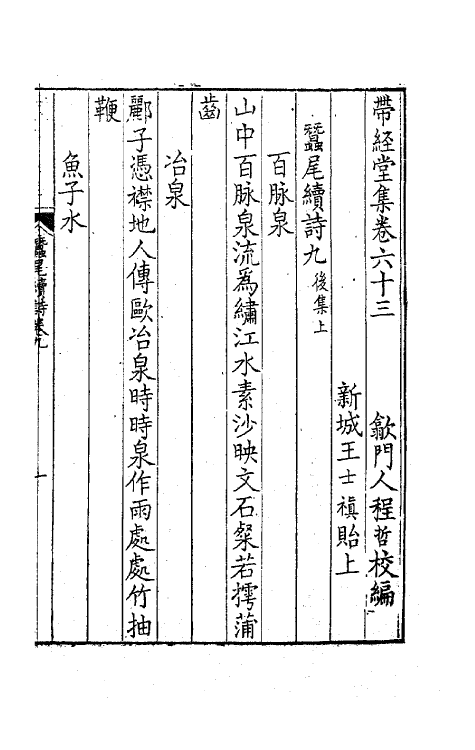 帶經堂集卷六十三　歙門人程哲校編
新城王士禛貽上
蠶尾續詩九後集上
百脉泉
山中百脉泉流爲繡江水素沙映文石粲若摴蒲
齒
冶泉
酈子憑襟地人傳歐冶泉時時泉作雨處處竹抽
鞭
魚子水
蠶尾續詩卷九
一